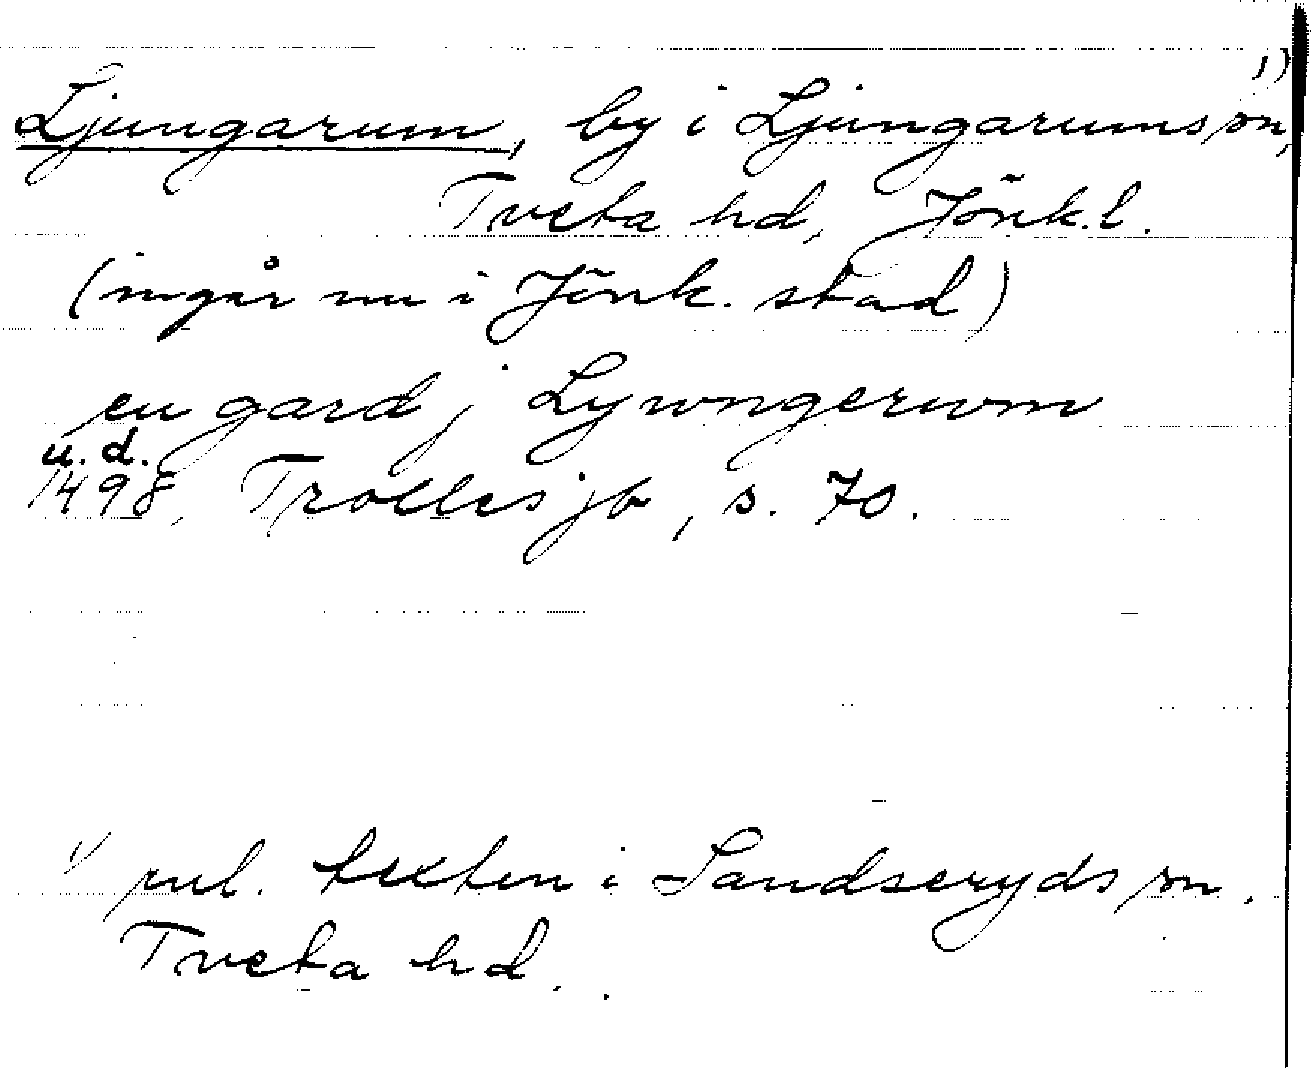 Ljungarum, by i Ljungarums sn, 1)
Tveta hd, Jönk. l.
(ingår nu i Jönk. stad)
en gard j Lywngerwm
u. d.
1498, Trolles jb, s. 70.
1) enl. texten i Sandseryds sn.
Tveta hd.